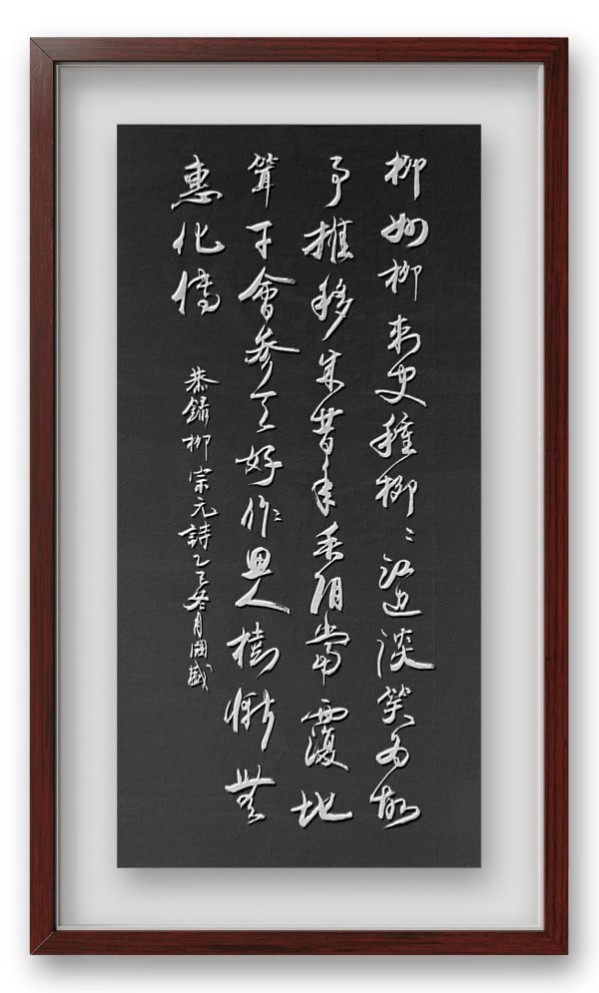 柳州柳刺史種柳〻江边談笑为故
事推移成昔年垂阴當覆地
耸干會参天好作思人樹慚無
惠化傳
恭錄柳宗元詩乙巳冬月國盛